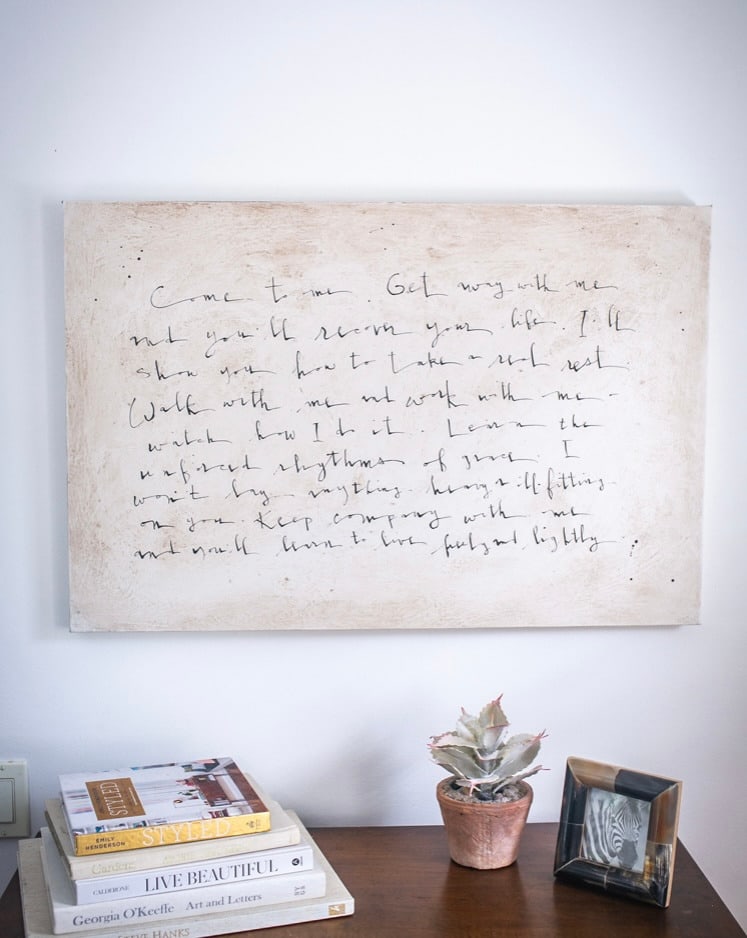 Come to me. Get away with me
and you'll recover your life. I'll
show you how to take a real rest.
Walk with me and work with me -
watch how I do it. Learn the
unforced rhythms of grace. I
won't lay anything heavy or ill-fitting
on you. Keep company with me
and you'll learn to live freely and lightly.
STYLED
EMILY HENDERSON
STYLED
Garden
CALDERONE LIVE BEAUTIFUL
Georgia O'Keeffe Art and Letters
STEVE HANKS